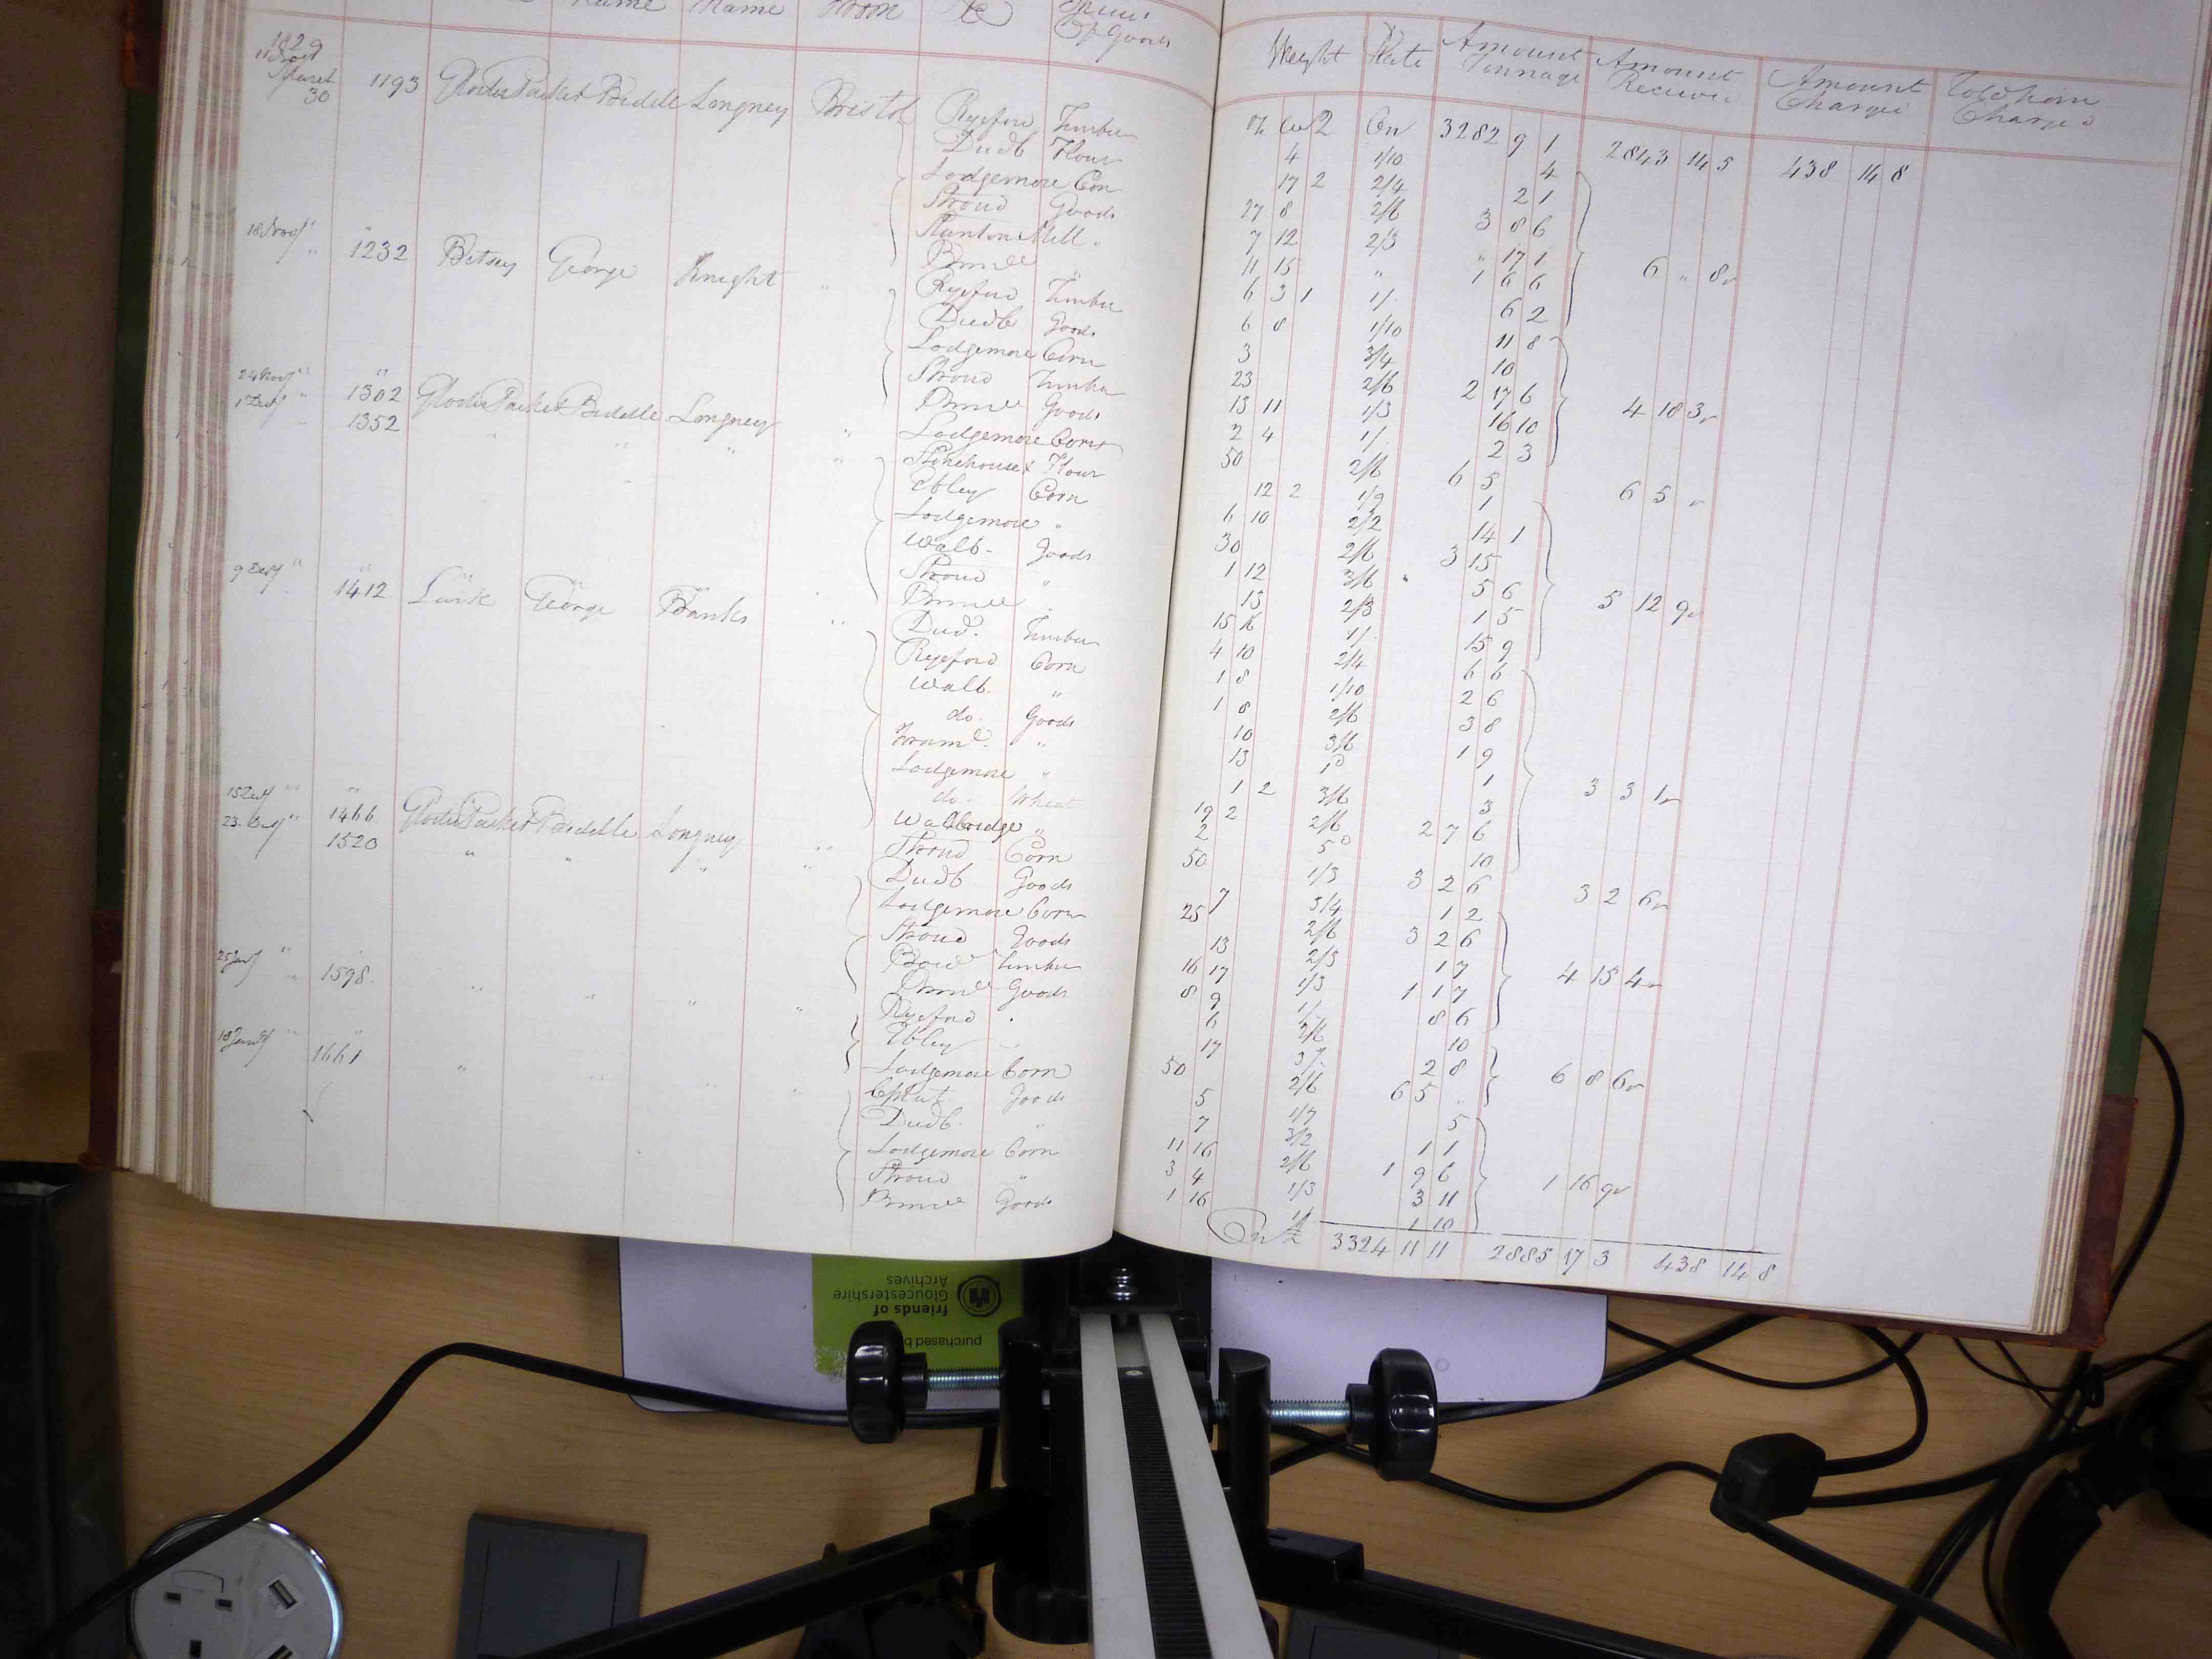 Name Name From To Species Of Goods Weight Rate Amount Tonnage Amount Received Amount Charged To Whom Charged
1829
March
30 1193 Glocester Packet Biddle Longney Bristol Ryeford Timber 4 1/10 4
Dudb Flour 17 2 2/4 2 1
Lodgemore Corn 27 8 2/6 3 8 6
Stroud Goods 7 12 2/3 " 17 1
Stanton Mill " 11 15 " 1 6 6
Brimcc " 6 3 1 1/. 6 2
3282 9 1 2843 14 5 438 14 8
6 " 8
18 Nov " 1232 Betsey George Knight " Ryeford Timber 6 8 1/10 11 8
Dudb Goods 3 3/4 10
Lodgemore Corn 23 2/6 2 17 6
Stroud Timber 13 11 1/3 16 10
Brimce Goods 2 4 1/. 2 3
4 18 3
24 Nov " 1302 Glocester Packet Biddle Longney " Lodgemore Corn 50 2/6 6 5 6 5
1 Dec " 1352 " " " " Stonehouse Flour 12 2 1/9 1
Ebley Corn 6 10 2/2 14 1
Lodgemore " 30 2/6 3 15
Walb. Goods 1 12 3/6 5 6
Stroud " 13 2/3 1 5
Brimce " 15 16 1/. 15 9
5 12 9
9 Dec " 1412 Lark George Banks " Dud. Timber 4 10 2/4 6 6
Ryeford Corn 1 8 1/10 2 6
Walb. " 1 8 2/6 3 8
do. Goods 10 3/6 1 9
Fram. " 13 1
Lodgemore " 1 2 3/6 3
do. Wheat 19 2 2/6 2 7 6
Wallbridge " 2 10
3 3 1
15 Dec " 1466 Glocester Packet Biddle Longney " Stroud Corn 50 1/3 3 2 6 3 2 6
23 Dec " 1520 " " " " Dudb Goods 7 3/4 1 2
Lodgemore Corn 25 2/6 3 2 6
Stroud Goods 13 2/3 1 7
Bow Timber 16 17 1/3 1 1 7
Brimce Goods 8 9 1/. 8 6
4 15 4
1598 " " " " Ryeford 6 10
Ebley 17 3/. 2 8
Lodgemore Corn 50 2/6 6 5
6 8 6
1661 " " " " Goods 5 1/7 5
Dudb. " 7 3/2 1 1
Lodgemore Corn 11 16 2/6 1 9 6
Stroud " 3 4 1/3 3 11
Brimce Goods 1 16 1/ 1 10
1 16 9
3324 11 11 2885 17 3 438 14 8
purchased b
friends of
Gloucestershire
Archives